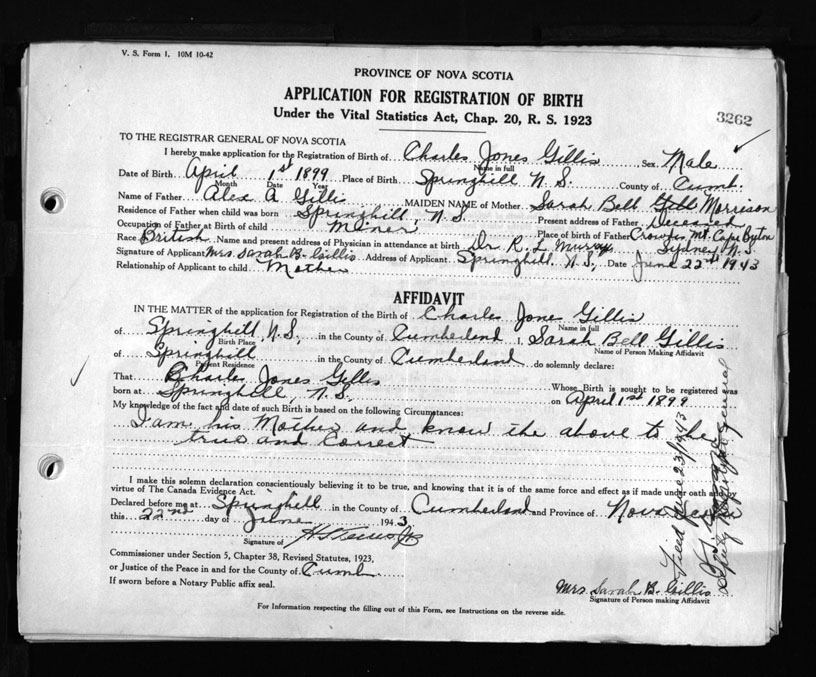 V. S. Form 1. 10M 10-42
PROVINCE OF NOVA SCOTIA
APPLICATION FOR REGISTRATION OF BIRTH
Under the Vital Statistics Act, Chap. 20, R. S. 1923
3262
TO THE REGISTRAR GENERAL OF NOVA SCOTIA
I hereby make application for the Registration of Birth of Charles Jones Gillis Sex Male
Name in full
Date of Birth April 1st 1899 Place of Birth Springhill N. S. County of Cumb.
Month Date Year
Name of Father Alex A Gillis MAIDEN NAME of Mother Sarah Bell Morrison
Residence of Father when child was born Springhill, N. S. Present address of Father Deceased
Occupation of Father at Birth of child Miner Place of birth of Father Mt. Cape Byton
Race British Name and present address of Physician in attendance at birth Dr. R. L. Murray Sydney N. S
Signature of Applicant Mrs Sarah B. Gillis Address of Applicant Springhill. N. S., Date June 22nd 1943
Relationship of Applicant to child Mother
AFFIDAVIT
IN THE MATTER of the application for Registration of the Birth of Charles Jones Gillis
Name in full
of Springhill, N. S., in the County of Cumberland I, Sarah Bell Gillis
Birth Place Name of Person Making Affidavit
of Springhill in the County of Cumberland do solemnly declare:
Present Residence
That Charles Jones Gillis Whose Birth is sought to be registered was
born at Springhill, N. S. on April 1st 1899
My knowledge of the fact and date of such Birth is based on the following Circumstances:
I am his Mother and know the above to be
true and Correct
I make this solemn declaration conscientiously believing it to be true, and knowing that it is of the same force and effect as if made under oath and by
virtue of The Canada Evidence Act.
Declared before me at Springhill in the County of Cumberland and Province of Nova Scotia
this 22nd day of June 1943
Signature of
Commissioner under Section 5, Chapter 38, Revised Statutes, 1923,
or Justice of the Peace in and for the County of Cumb
If sworn before a Notary Public affix seal.
Mrs. Sarah B. Gillis
Signature of Person making Affidavit
For Information respecting the filling out of this Form, see Instructions on the reverse side.
Filed June 23/1943
General